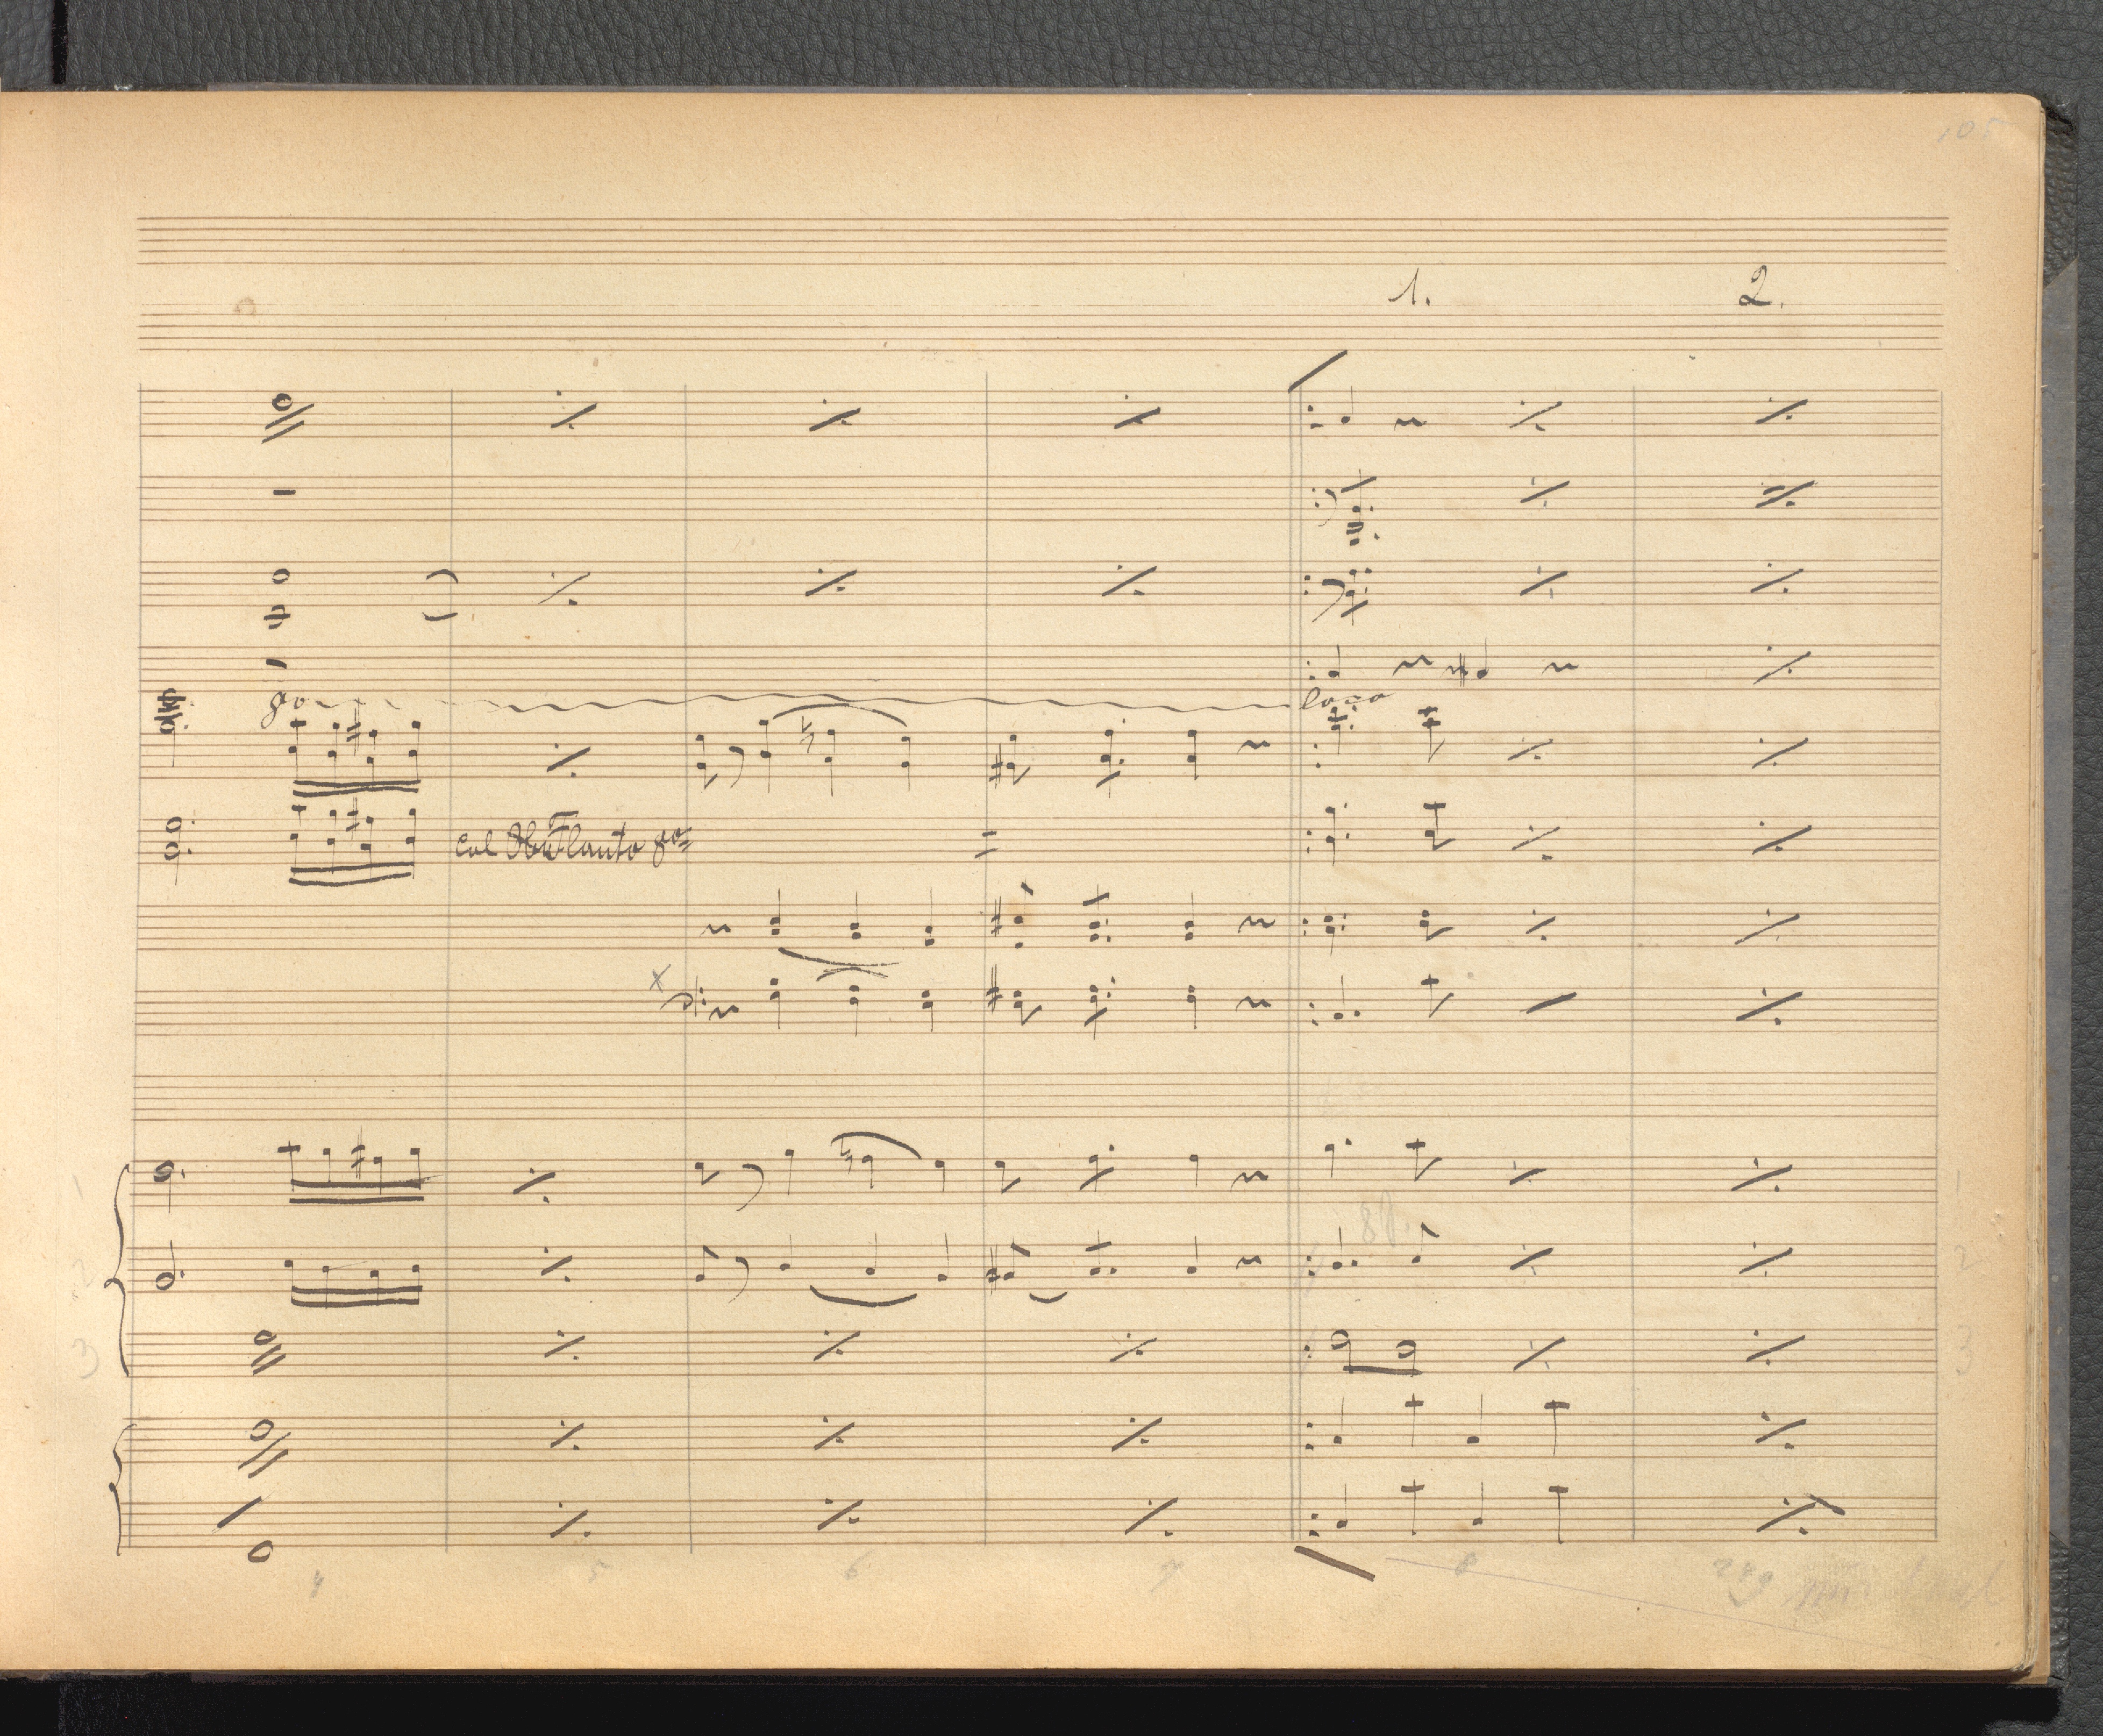 105
1. 2.
8o loco
col Flauto 8o
1 1
2 2
88.
3 3
4 5 6 7 8 249